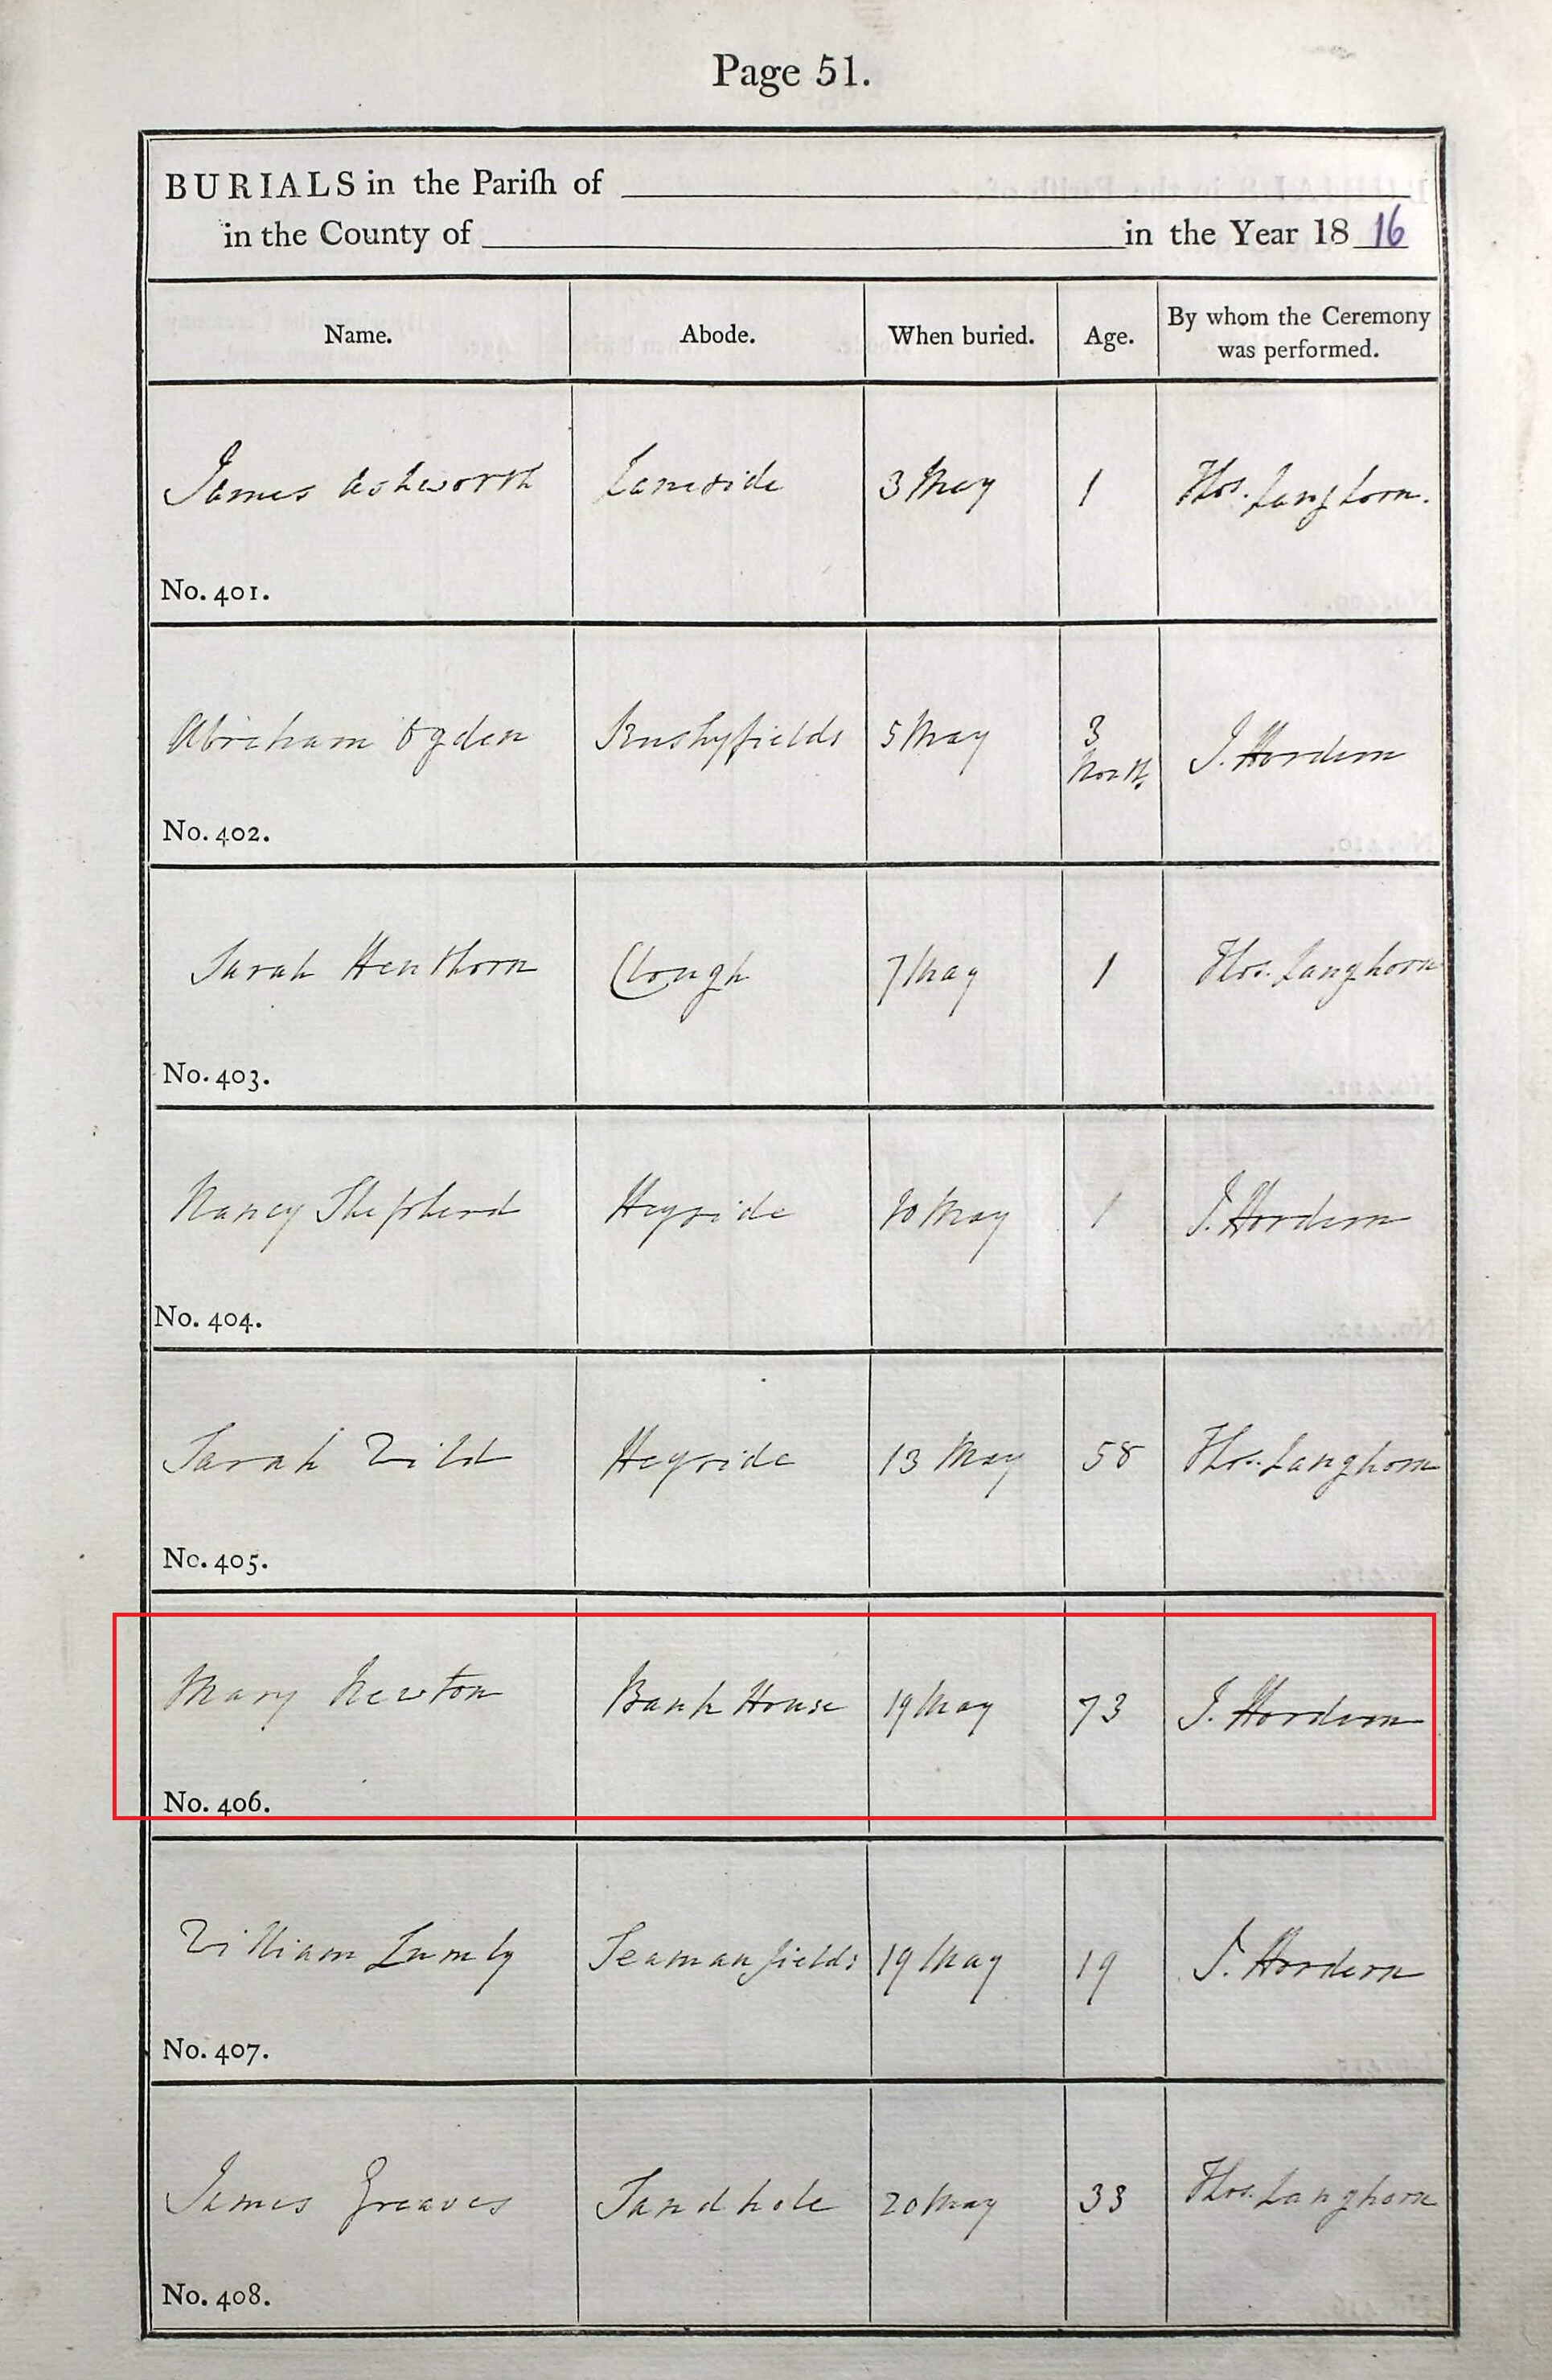 Page 51.
BURIALS in the Pariſh of
in the County of in the Year 18 16
Name. Abode. When buried. Age. By whom the Ceremony was performed.
James Ashworth Laneside 3 May 1 Thos. Langhorn.
No. 401.
Abraham Ogden Brushyfields 5 May 3 Month J. Hordern
No. 402.
Sarah Henthorn Clough 7 May 1 Thos. Langhorn
No. 403.
Nancy Shepherd Heyside 10 May 1 J. Hordern
No. 404.
Sarah Wild Heyside 13 May 58 Thos. Langhorn
No. 405.
Mary Newton Bank House 19 May 73 J. Hordern
No. 406.
William Lumly Seamanfields 19 May 19 J. Hordern
No. 407.
James Greaves Sandhole 20 May 33 Thos. Langhorn
No. 408.